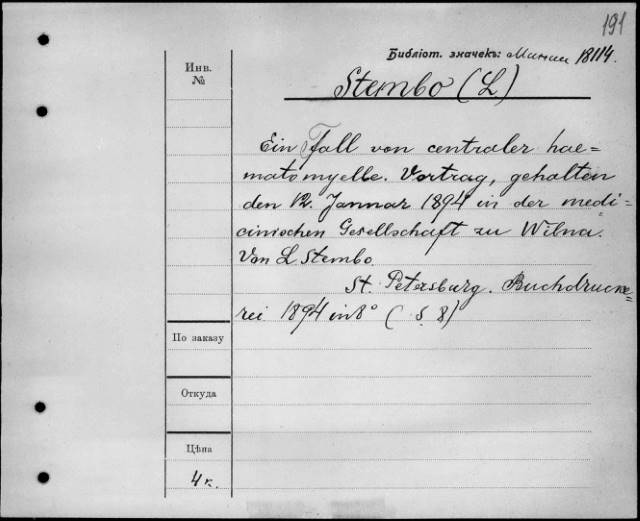 191
Библіот. значекъ: 18114.
Инв.
№
Stembo (L)
Ein Fall von centraler hae=
matomyelbe. Vortrag, gehalten
den 12. Januar 1894 in der medi=
cinischen Gesellschaft zu Wilna.
Von L Stembo
St. Petersburg. Buchdrucke=
rei 1894 in 8° ( S. 8)
По заказу
Откуда
Цѣна
4 к.